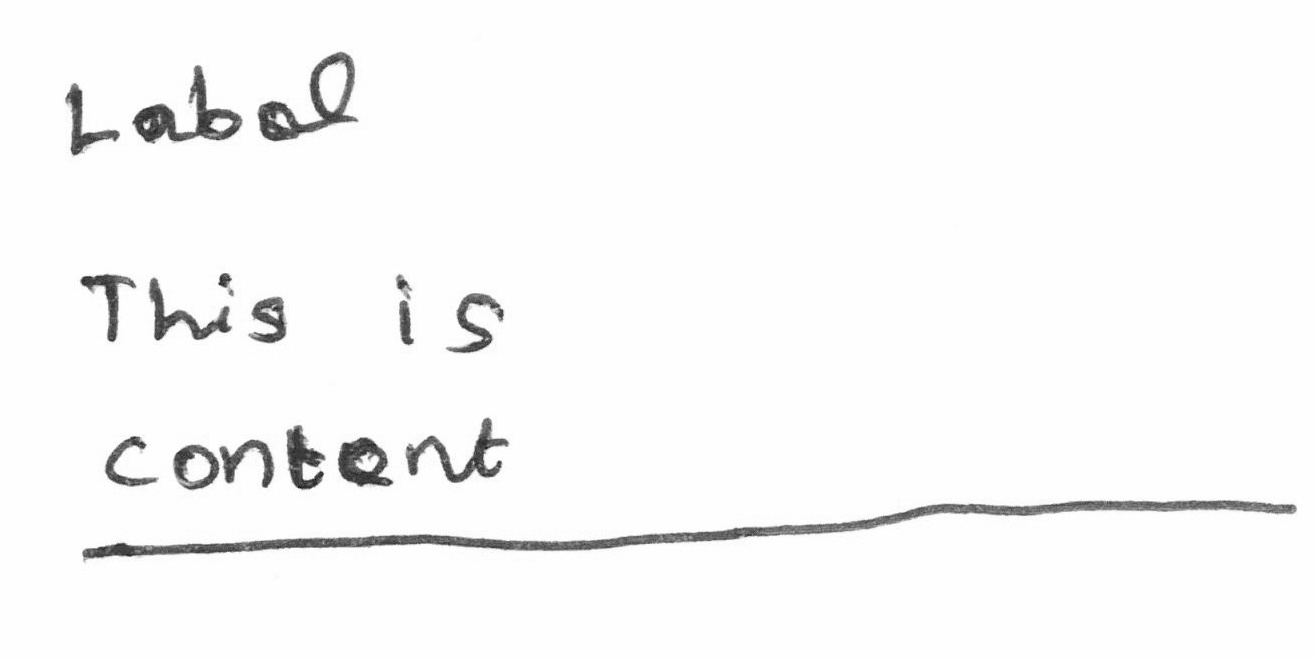 Label
This is
content